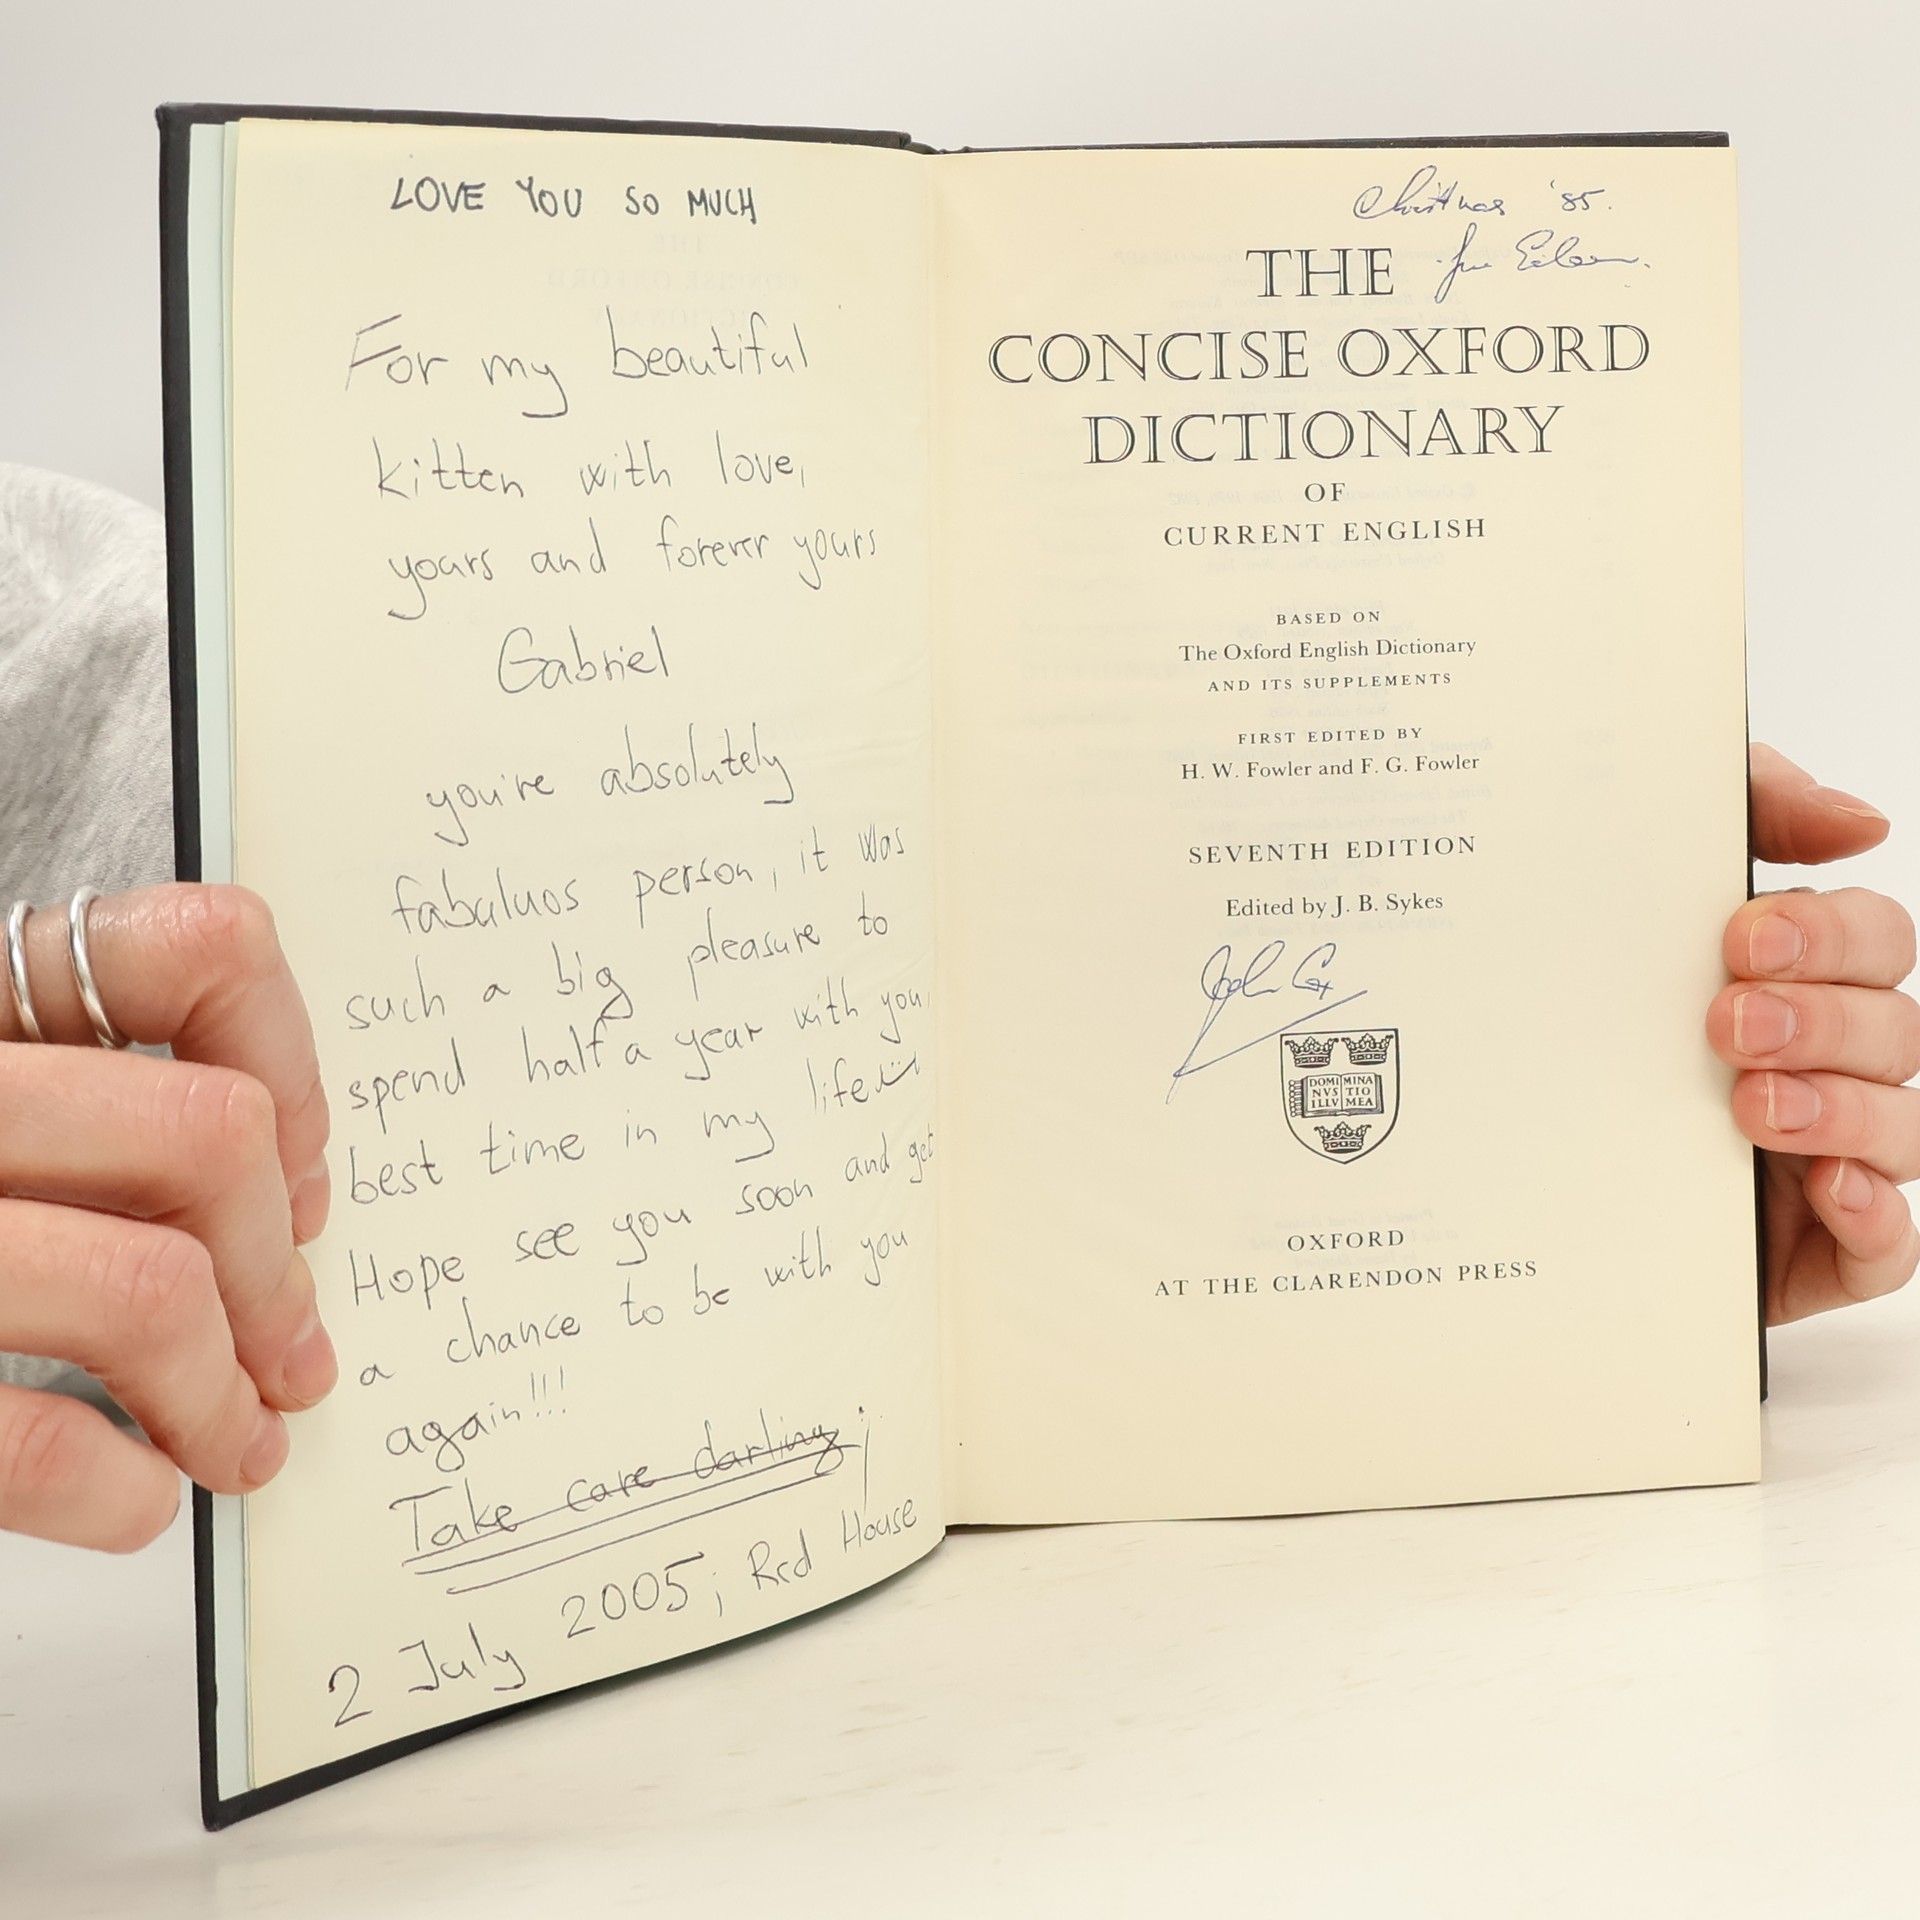 LOVE YOU SO MUCH
For my beautiful
kitten with love,
yours and forever yours
Gabriel
you're absolutely
fabuluos person, it was
such a big pleasure to
spend half a year with you,
best time in my life
Hope see you soon and get
a chance to be with you
again!!!
Take care darling;
2 July 2005; Red House
Christmas '85.
THE
Eileen.
CONCISE OXFORD
DICTIONARY
OF
CURRENT ENGLISH
BASED ON
The Oxford English Dictionary
AND ITS SUPPLEMENTS
FIRST EDITED BY
H. W. Fowler and F. G. Fowler
SEVENTH EDITION
Edited by J. B. Sykes
John Cox
DOMI MINA
NVS TIO
ILLV MEA
OXFORD
AT THE CLARENDON PRESS